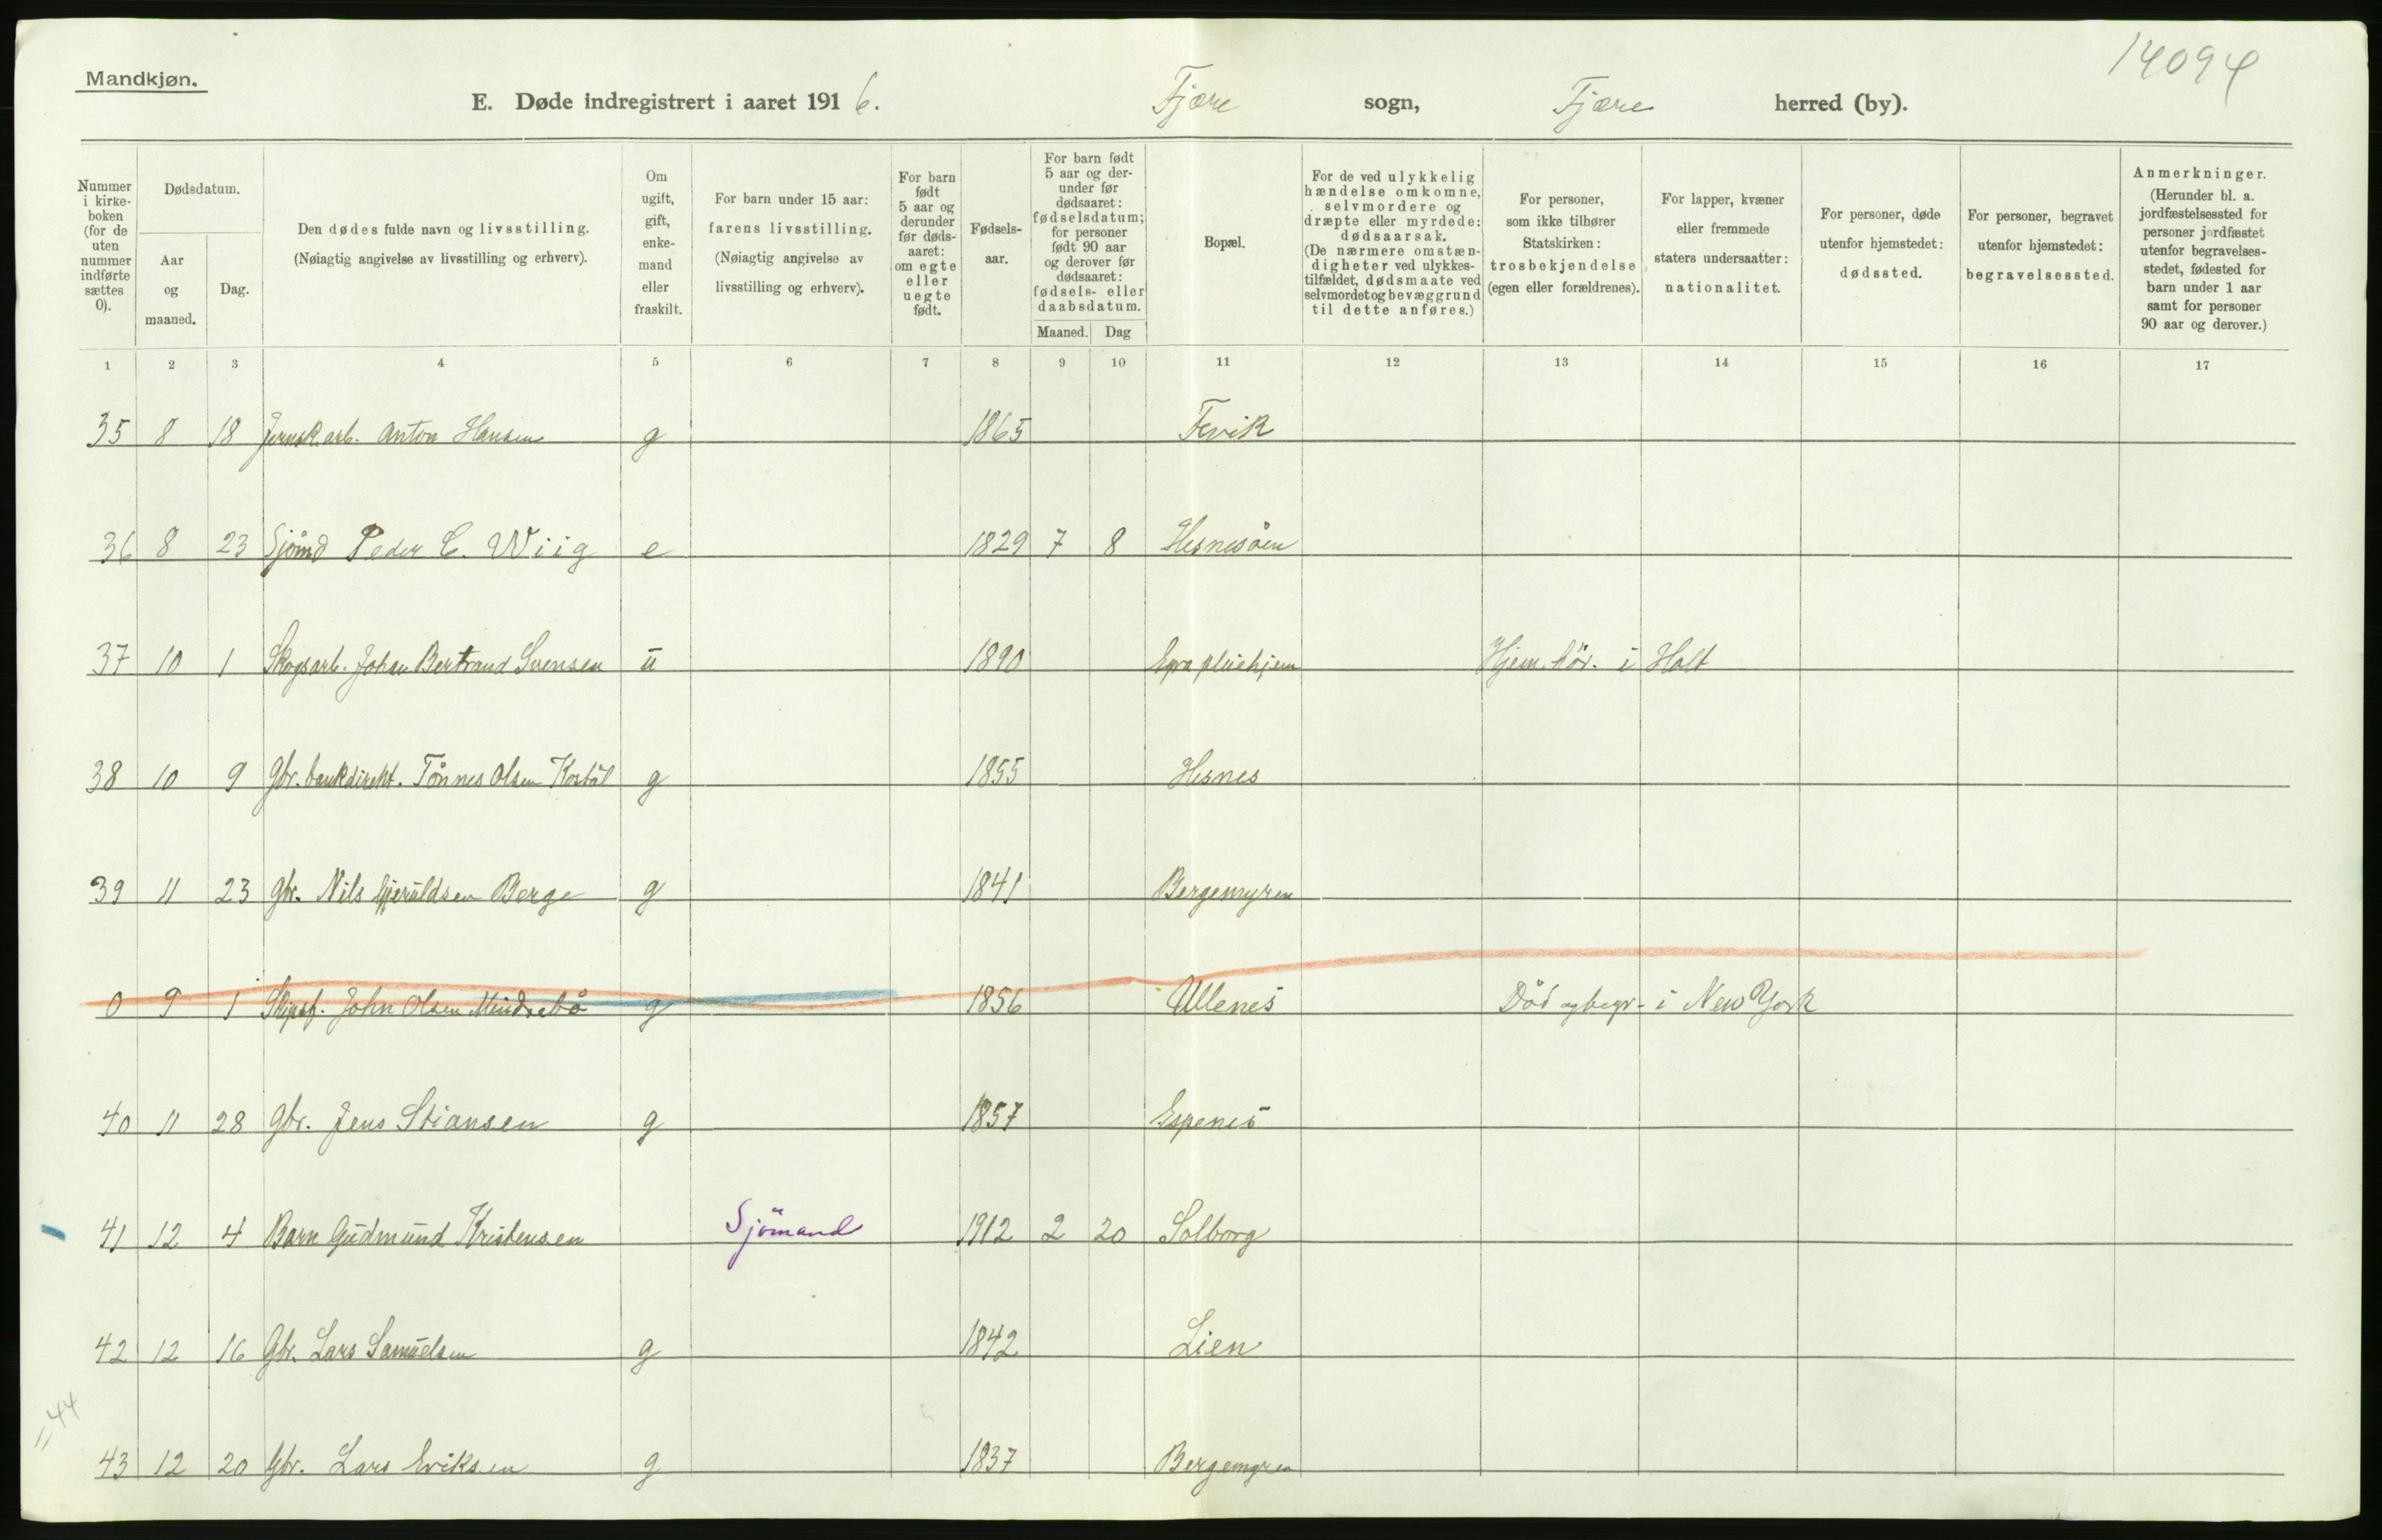 14094
Mandkjøn.
E. Døde indregistrert i aaret 1916. Fjære sogn, Fjære herred (by).
Nummer i kirke-boken (for de uten nummer indførte sættes 0).
Dødsdatum.
Aar og maaned.
Dag.
Den dødes fulde navn og livsstilling.
(Nøiagtig angivelse av livsstilling og erhverv).
Om ugift, gift, enke-mand eller fraskilt.
For barn under 15 aar:
farens livsstilling.
(Nøiagtig angivelse av livsstilling og erhverv).
For barn født 5 aar og derunder før døds-aaret: om egte eller uegte født.
Fødsels-aar.
For barn født 5 aar og der-under før dødsaaret: fødselsdatum; for personer født 90 aar og derover før dødsaaret: fødsels- eller daabsdatum.
Maaned. Dag
Bopæl.
For de ved ulykkelig hændelse omkomne, selvmordere og dræpte eller myrdede: dødsaarsak. (De nærmere omstæn-digheter ved ulykkes-tilfældet, dødsmaate ved selvmordet og bevæggrund til dette anføres.)
For personer, som ikke tilhører Statskirken: trosbekjendelse (egen eller forældrenes).
For lapper, kvæner eller fremmede staters undersaatter: nationalitet.
For personer, døde utenfor hjemstedet: dødssted.
For personer, begravet utenfor hjemstedet: begravelsessted.
Anmerkninger.
(Herunder bl. a. jordfæstelsessted for personer jordfæstet utenfor begravelses-stedet, fødested for barn under 1 aar samt for personer 90 aar og derover.)
1 2 3 4 5 6 7 8 9 10 11 12 13 14 15 16 17
35 8 18 Jernsk.arb. Anton Hansen g 1865 Fevik
36 8 23 Sjömd Peder C. Wiig e 1829 7 8 Hesnesöen
37 10 1 Skogsarb. Johan Bertrand Svensen u 1890 Egra pleiehjem Hjem.hör. i Holt
38 10 9 Gbr. bankdirekt. Tönnes Olsen Kostöl g 1855 Hesnes
39 11 23 Gbr. Nils Gjeruldsen Berge g 1841 Bergemyren
0 9 1 Skipsf. John Olsen Mindrebö g 1856 Ullenes Död og begr. i New York
40 11 28 Gbr. Jens Stiansen g 1857 Espenes
41 12 4 Barn Gudmund Kristensen Sjömand 1912 2 20 Solborg
42 12 16 Gbr. Lars Samuelsen g 1842 Lien
=44
43 12 20 Gbr. Lars Eriksen g 1837 Bergemyren